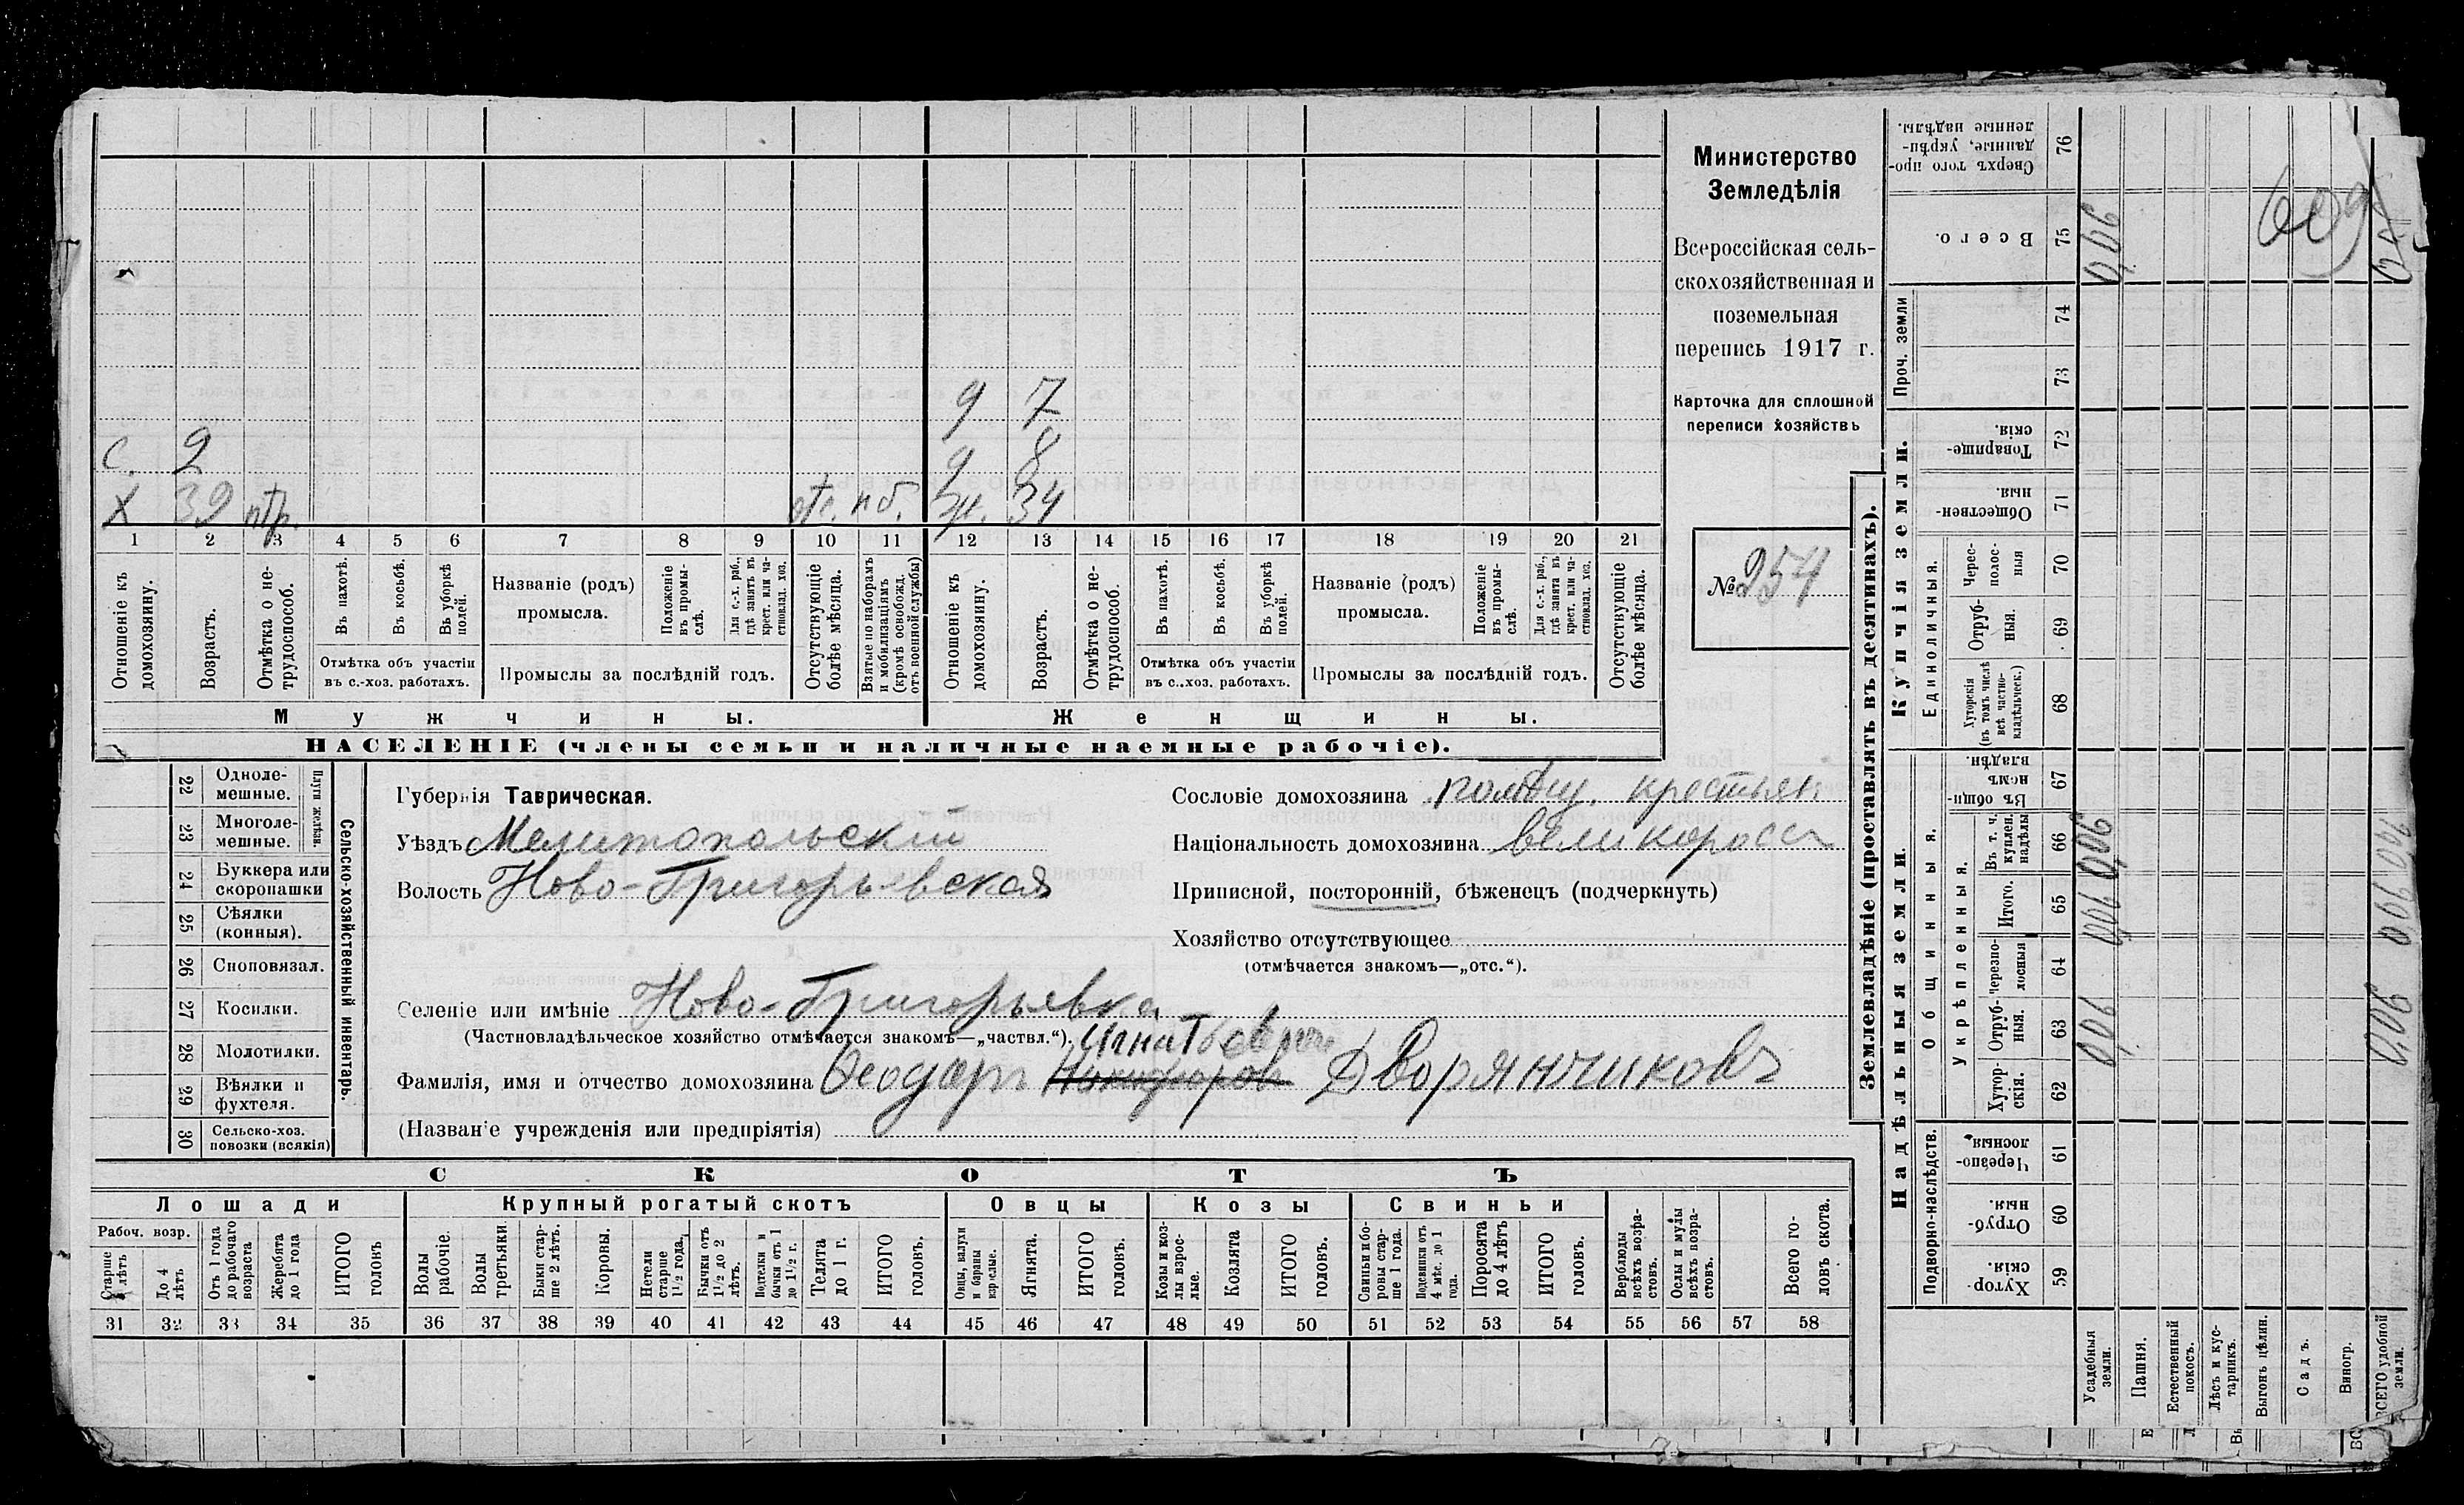 Министерство
Земледѣлія
Всероссійская сель-
скохозяйственная и
поземельная
перепись 1917 г.
Карточка для сплошной
переписи хозяйствъ
№ 254
609
д 7
с. 2 д 8
х 39 нтр. отс. ж. 34
1 2 3 4 5 6 7 8 9 10 11 12 13 14 15 16 17 18 19 20 21
Отношеніе къ домохозяину.
Возрастъ.
Отмѣтка о не-трудоспособ.
Въ пахотѣ.
Въ косьбѣ.
Въ уборкѣ полей.
Отмѣтка объ участіи
въ с.-хоз. работахъ.
Названіе (родъ)
промысла.
Положеніе въ промы-слѣ.
Для с.-х. раб., гдѣ занятъ въ крест. или ча-стновлад. хоз.
Промыслы за послѣдній годъ.
Отсутствующіе болѣе мѣсяца.
Взятые по наборамъ и мобилизаціямъ (кромѣ освобожд. отъ военной службы)
Отношеніе къ домохозяину.
Возрастъ.
Отмѣтка о не-трудоспособ.
Въ пахотѣ.
Въ косьбѣ.
Въ уборкѣ полей.
Отмѣтка объ участіи
въ с.-хоз. работахъ.
Названіе (родъ)
промысла.
Положеніе въ промы-слѣ.
Для с.-х. раб., гдѣ занятъ въ крест. или ча-стновлад. хоз.
Промыслы за послѣдній годъ.
Отсутствующіе болѣе мѣсяца.
Мужчины. Женщины.
НАСЕЛЕНІЕ (члены семьи и наличные наемные рабочіе).
22 Одноле-мешные.
23 Многоле-мешные.
Плуги желѣзн.
24 Буккера или скоропашки
25 Сѣялки (конныя).
26 Сноповязал.
27 Косилки.
28 Молотилки.
29 Вѣялки и фухтеля.
30 Сельско-хоз. повозки (всякія)
Сельско-хозяйственный инвентарь.
Губернія Таврическая.
Уѣздъ Мелитопольскій
Волость Ново-Григорьевская
Сословіе домохозяина крестьян.
Національность домохозяина великоросс
Приписной, посторонній, бѣженецъ (подчеркнуть)
Хозяйство отсутствующее
(отмѣчается знакомъ—„отс.“).
Селеніе или имѣніе Ново-Григорьевка
(Частновладѣльческое хозяйство отмѣчается знакомъ—„частвл.“).
Игнатьевич
Фамилія, имя и отчество домохозяина Ѳеодоръ Никифоров Дворянчиковъ
(Названіе учрежденія или предпріятія)
СКОТЪ
Лошади Крупный рогатый скотъ Овцы Козы Свиньи
Рабоч. возр.
Старше 4 лѣтъ
До 4 лѣтъ
Отъ 1 года до рабочаго возраста
Жеребята до 1 года
ИТОГО головъ
Волы рабочіе.
Волы третьяки.
Быки стар-ше 2 лѣтъ.
Коровы.
Нетели старше 1½ года.
Бычки отъ 1½ до 2 лѣтъ.
Подтелки и бычки отъ 1 до 1½ г.
Телята до 1 г.
ИТОГО головъ.
Овцы, валухи и бараны взрослые.
Ягнята.
ИТОГО головъ.
Козы и коз-лы взрос-лые.
Козлята
ИТОГО головъ.
Свиньи и бо-ровы стар-ше 1 года.
Подсвинки отъ 4 мѣс. до 1 года.
Поросята до 4 лѣтъ
ИТОГО головъ.
Верблюды всѣхъ возра-стовъ.
Ослы и мулы всѣхъ возра-стовъ.
Всего го-ловъ скота.
31 32 33 34 35 36 37 38 39 40 41 42 43 44 45 46 47 48 49 50 51 52 53 54 55 56 57 58
Землевладѣніе (проставлять въ десятинахъ).
Надѣльныя земли. Купчія земли. Проч. земли
Подворно-наслѣдств.
Общинныя.
Укрѣпленныя.
Единоличныя.
59 Хутор-скія.
60 Отруб-ныя.
61 Черезпо-лосныя
62 Хутор-скія.
63 Отруб-ныя. 0,06
64 Черезпо-лосныя
65 Итого. 0,06
66 Въ т. ч. куплен. надѣлы 0,06
67 Въ общи-немъ владѣн.
68 Хуторскія (въ томъ числѣ всѣ частно-владѣльческ.)
69 Отруб-ныя.
70 Черес-полос-ныя
71 Обществен-ныя.
72 Товарище-скія.
73
74
75 Всего. 0,06
76 Сверхъ того про-данные, укрѣп-ленные надѣлы.
Усадебныя земли.
Пашня.
Естественный покосъ.
Лѣсъ и кус-тарникъ.
Выгонъ цѣлин.
Садъ.
Виногр.
ВСЕГО удобной земли.
0,06